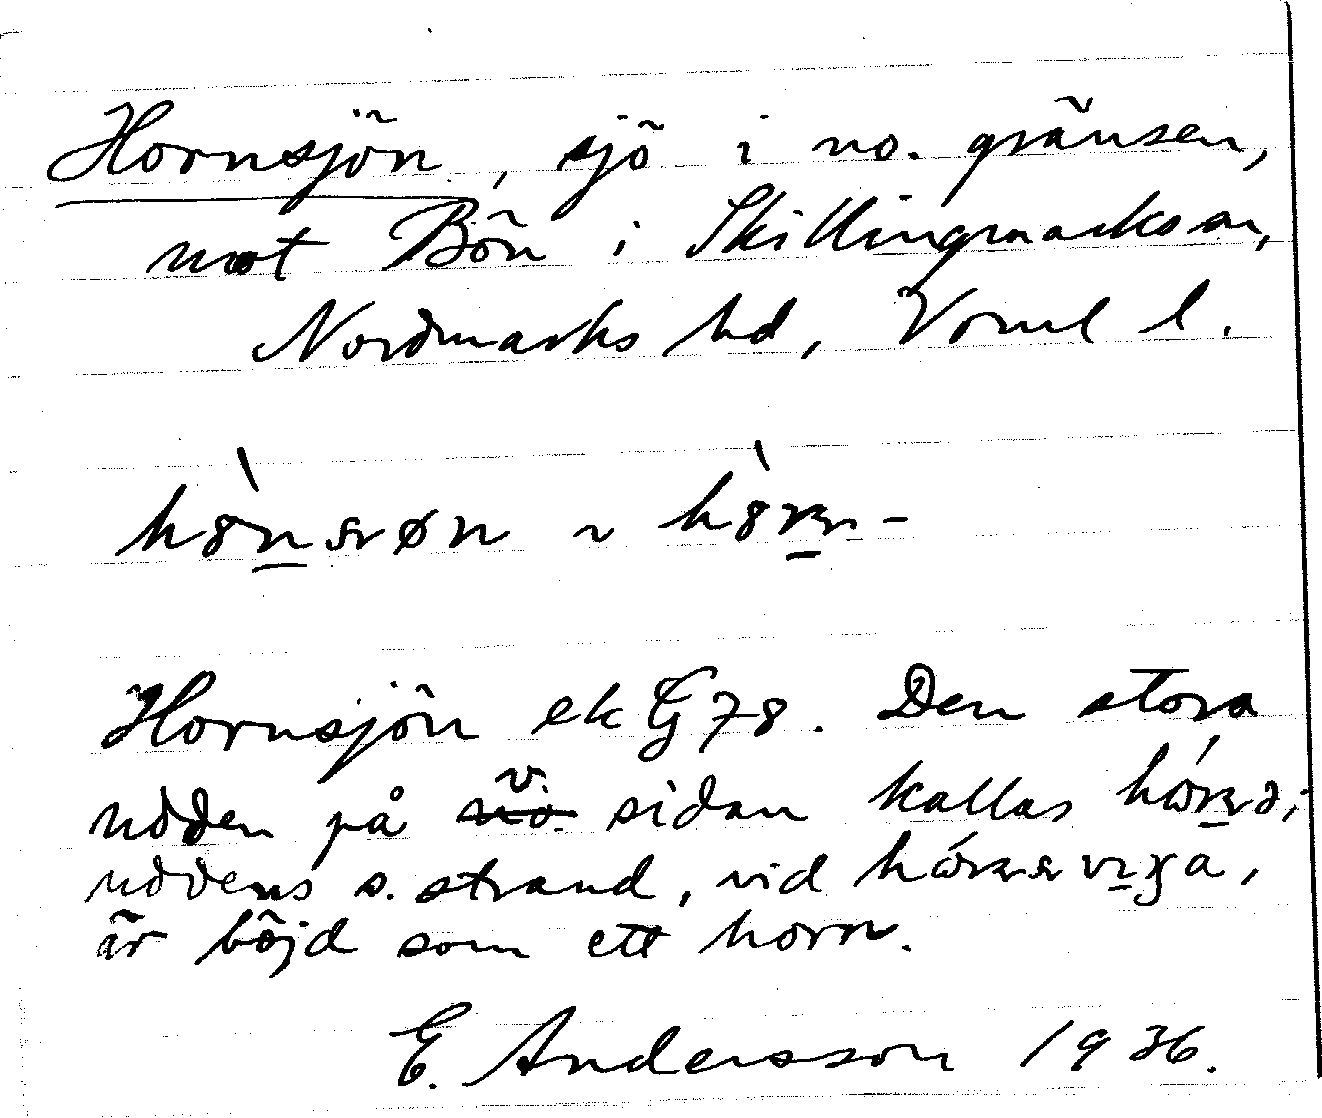 Hornsjön, sjö i no. gränsen,
mot Bön i Skillingmarks sn,
Nordmarks hd, Värml l.
Hornsjön ek G 78. Den stora
udden på v. sidan kallas
uddens s. strand, vid
är böjd som ett horn.
E. Andersson 1936.